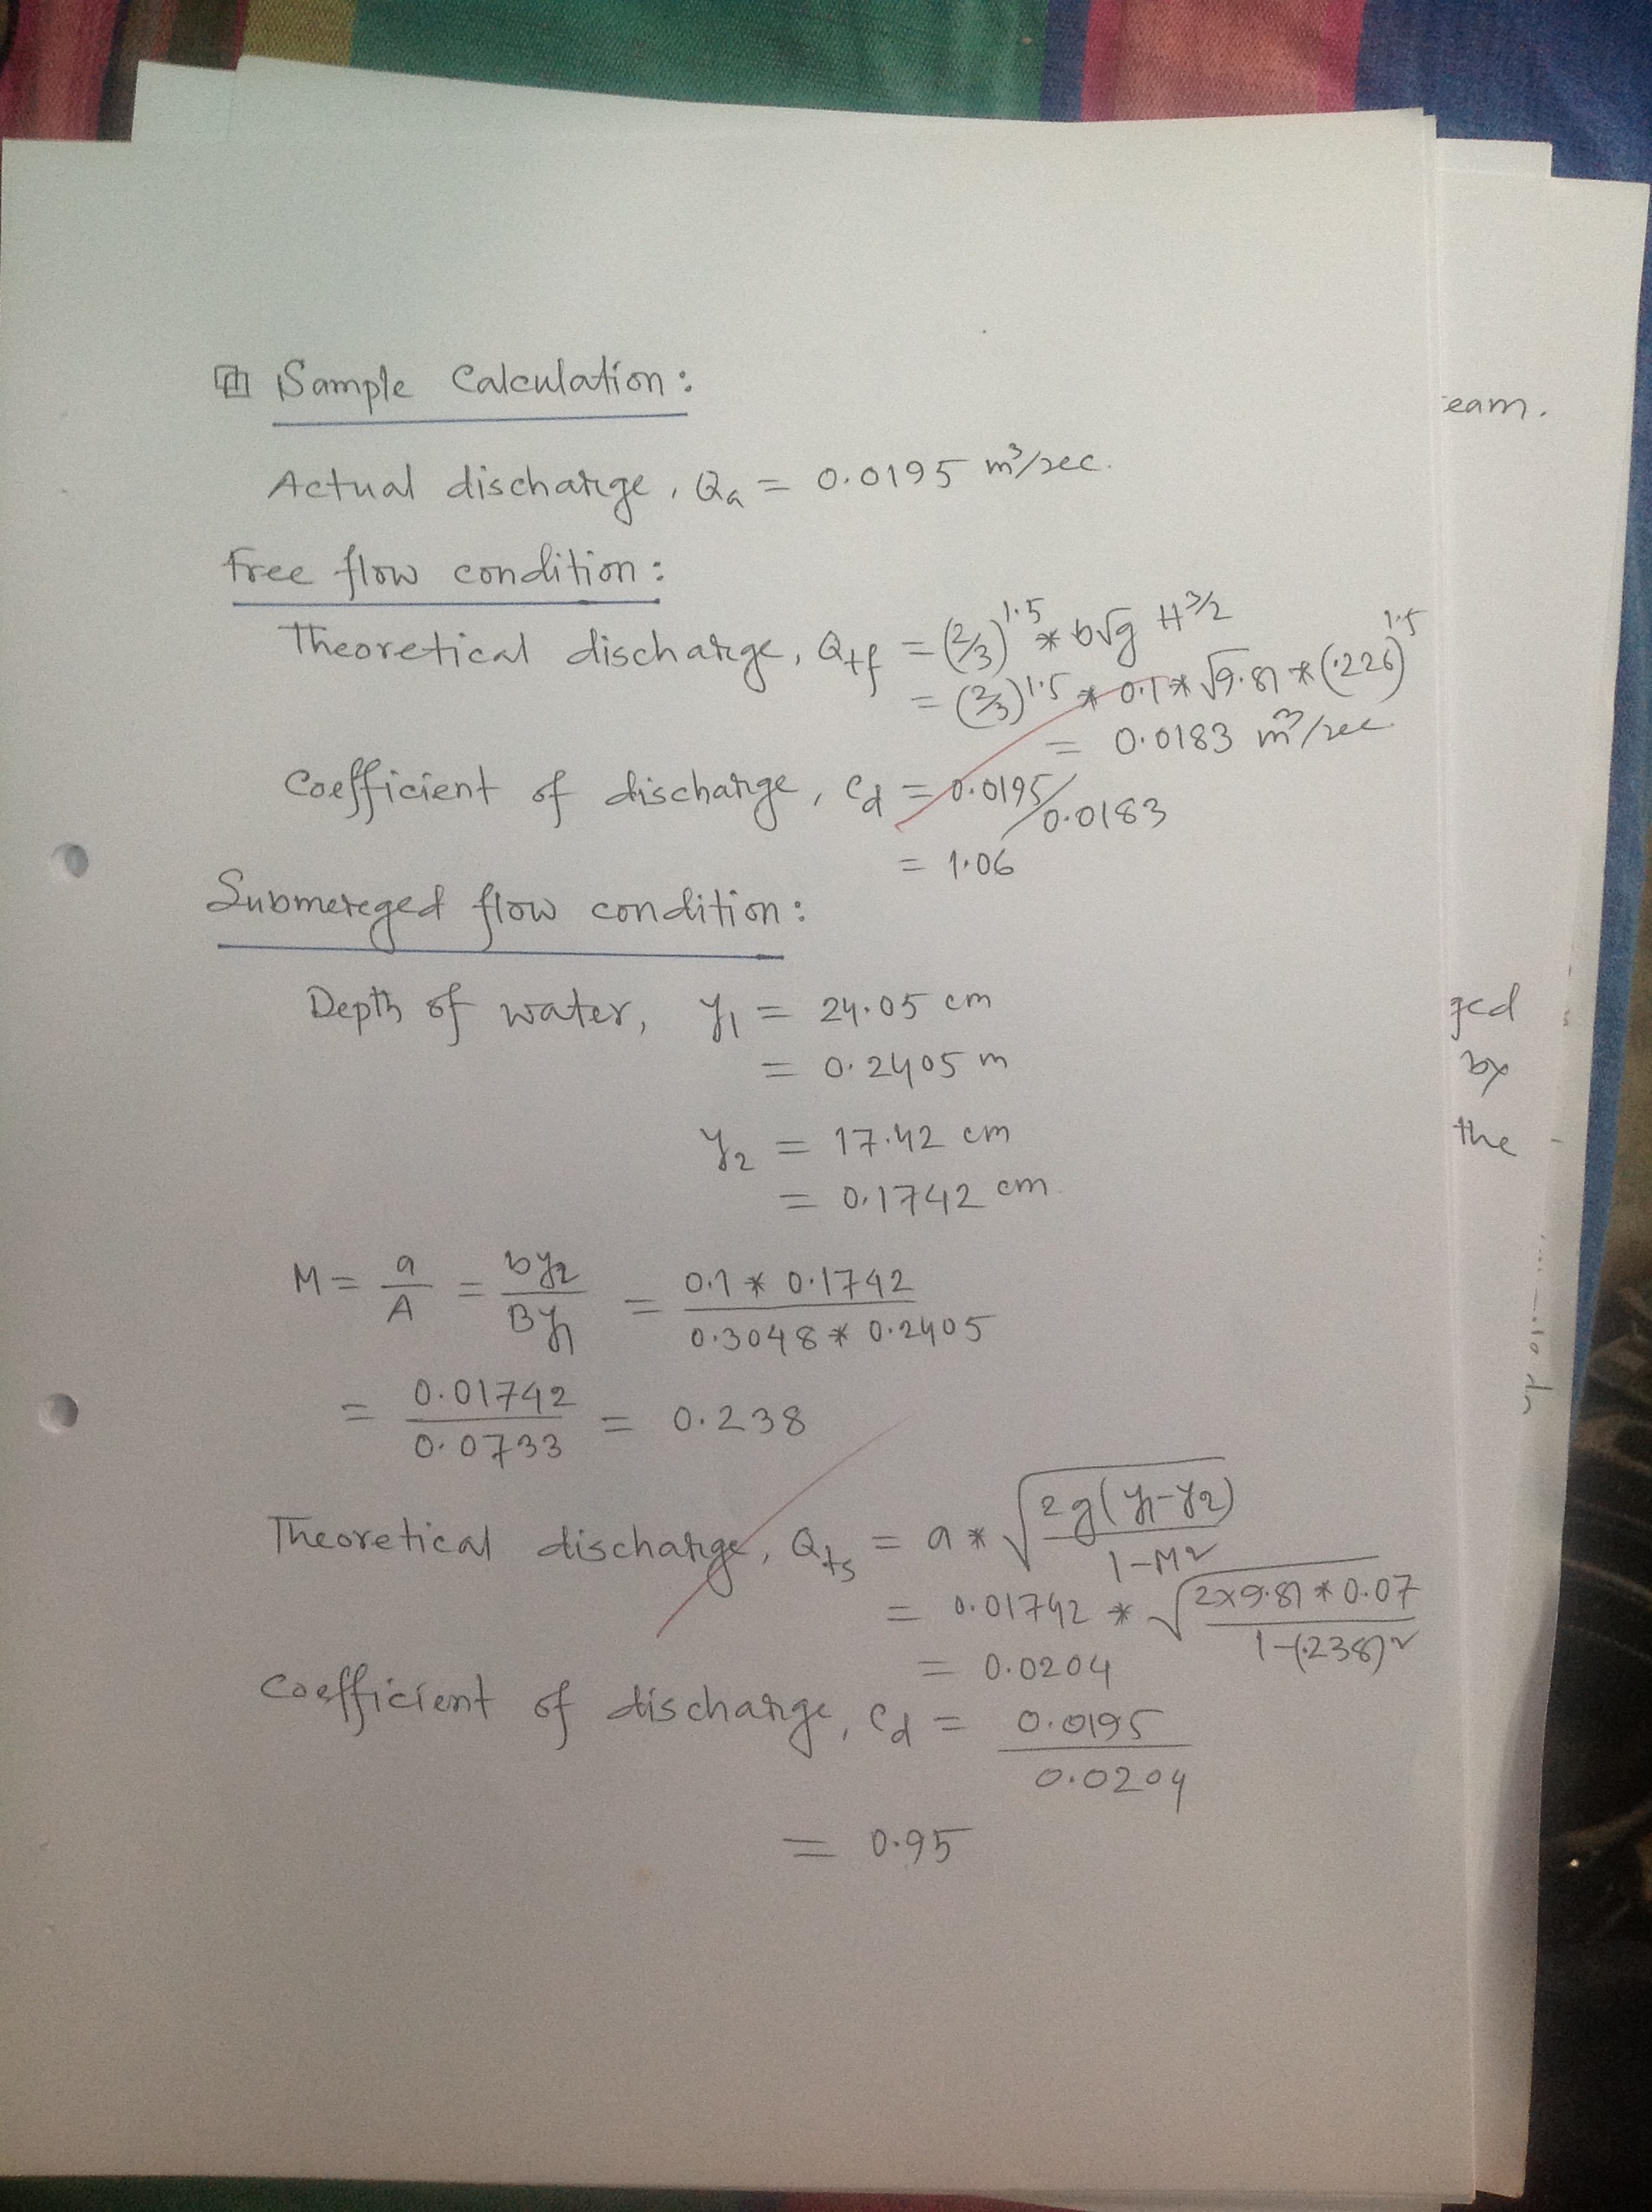 Sample Calculation:
Actual discharge, Qa = 0.0195 m³/sec.
Free flow condition:
Theoretical discharge, Qtf = (2/3)^1.5 * b√g H^3/2
= (2/3)^1.5 * 0.1 * √9.81 * (.226)^1.5
= 0.0183 m³/sec
Coefficient of discharge, Cd = 0.0195/0.0183
= 1.06
Submerged flow condition:
Depth of water, y1 = 24.05 cm
= 0.2405 m
y2 = 17.42 cm
= 0.1742 cm
M = a/A = by2/By1 = 0.1 * 0.1742 / 0.3048 * 0.2405
= 0.01742/0.0733 = 0.238
Theoretical discharge, Qts = a * √(2g(y1-y2)/1-M²)
= 0.01742 * √(2×9.81 * 0.07/1-(.238)²)
= 0.0204
Coefficient of discharge, Cd = 0.0195/0.0204
= 0.95
eam.
ged
by
the